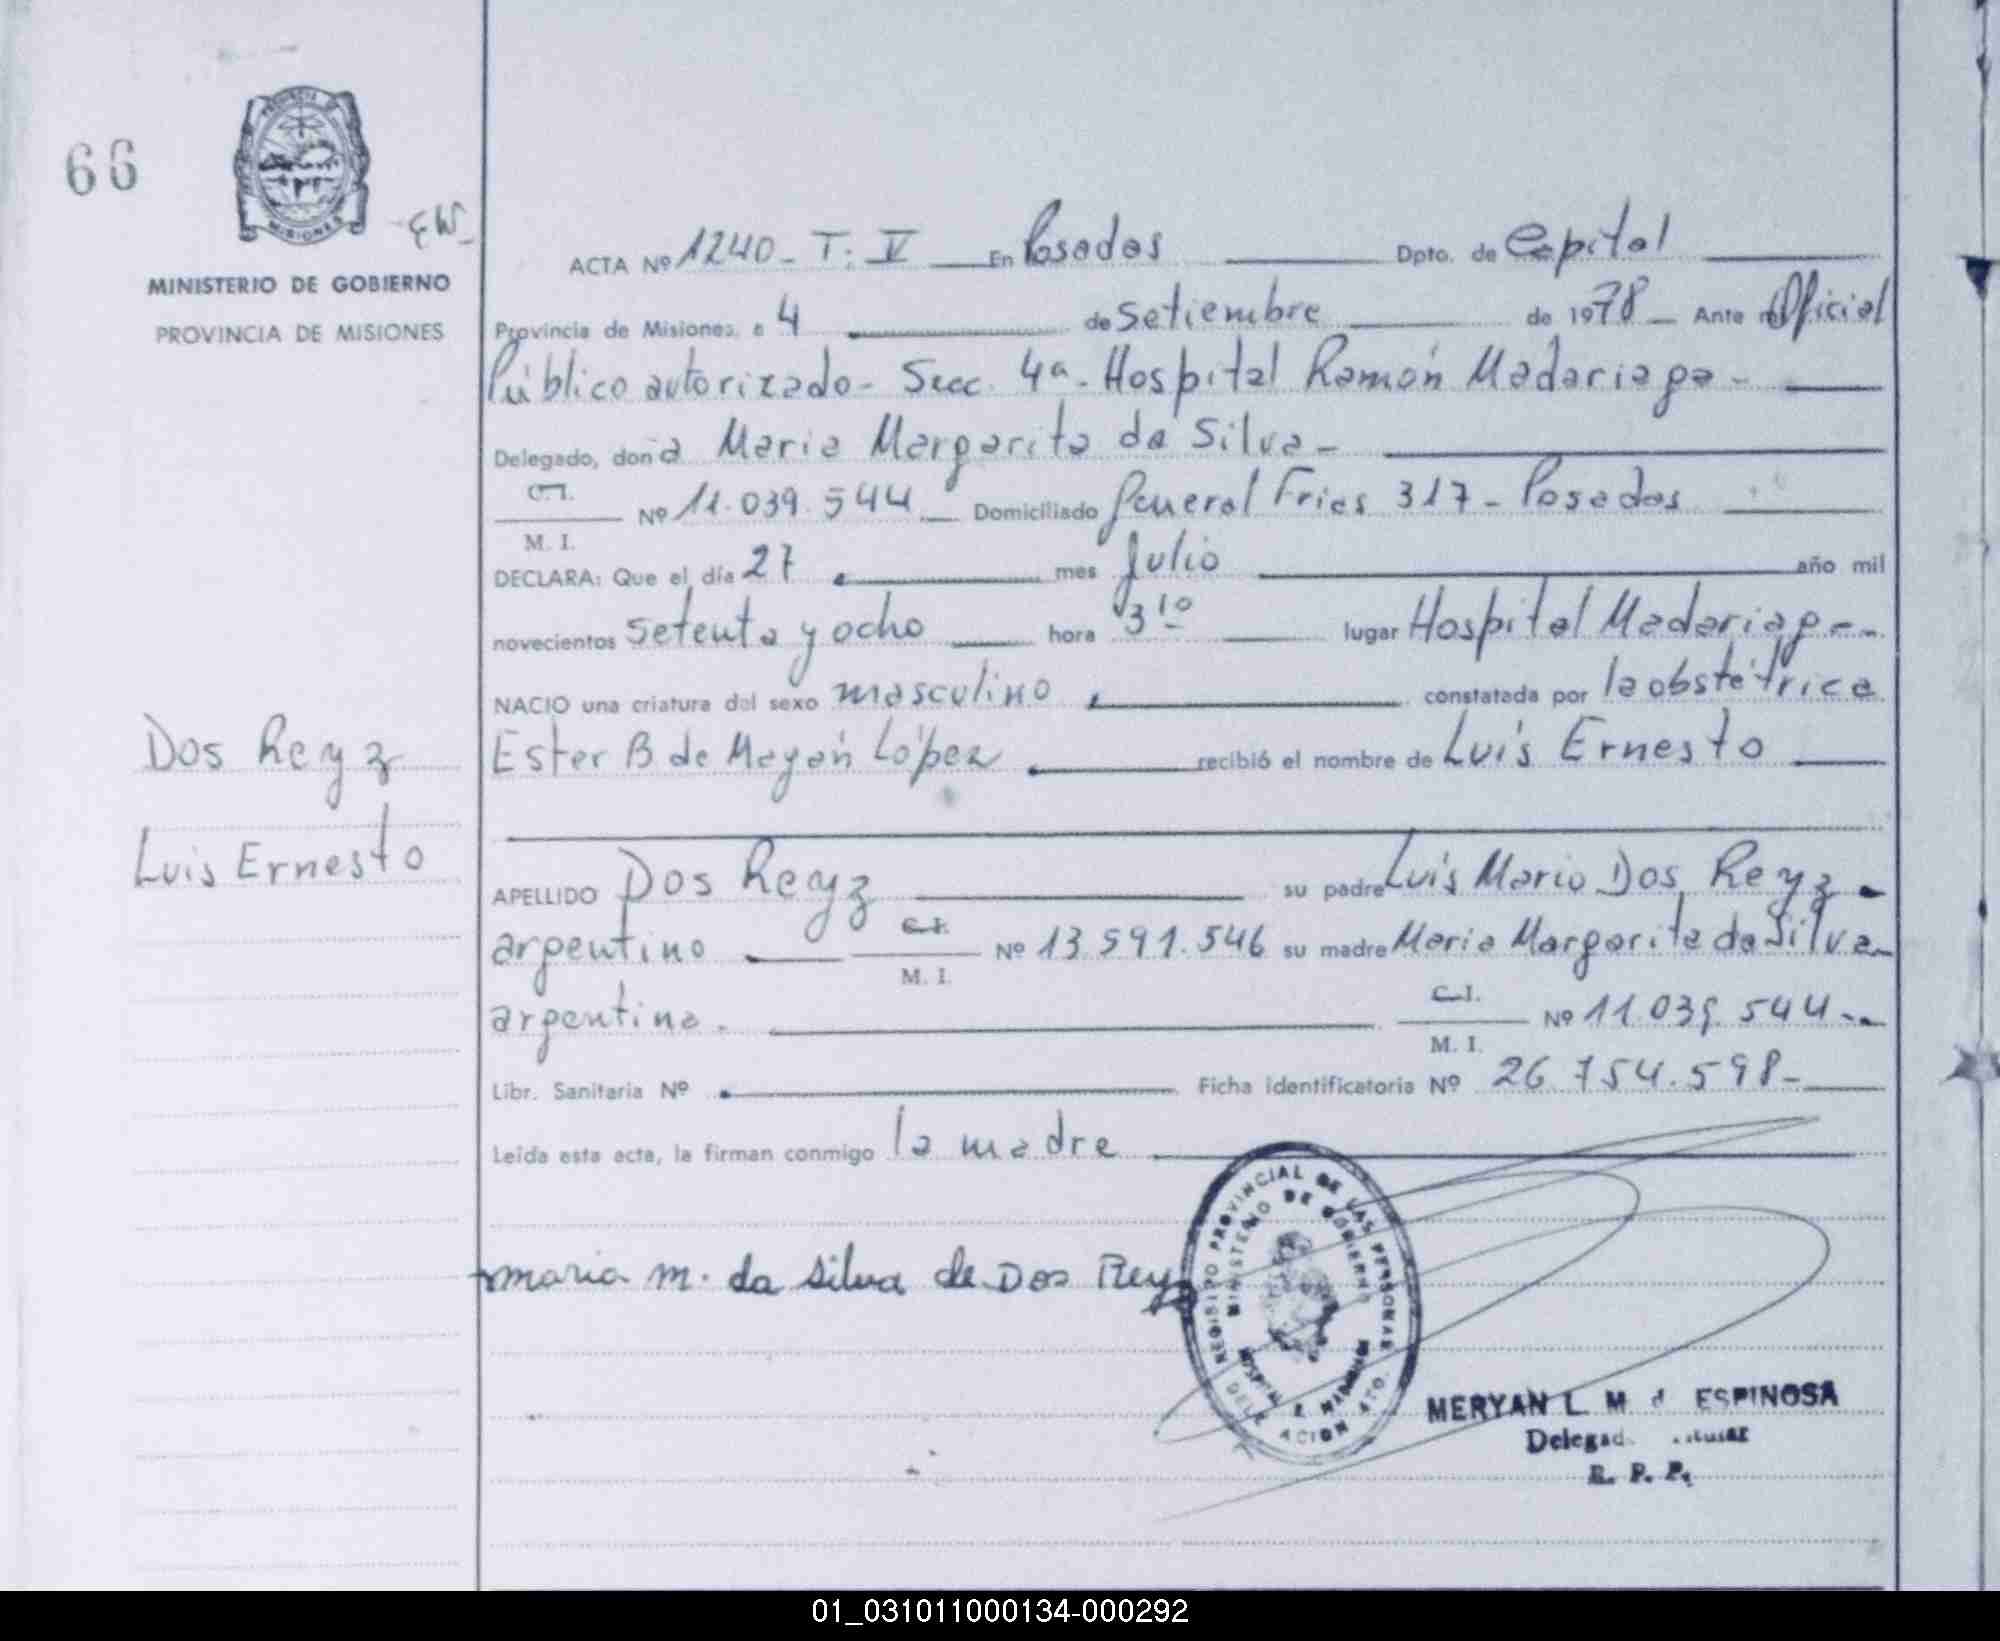 66
PROVINCIA DE
MISIONES
MINISTERIO DE GOBIERNO
PROVINCIA DE MISIONES
ACTA Nº 1240 - T: V En Posadas Dpto. de Capital
Provincia de Misiones, a 4 de Setiembre de 1978 - Ante mí Oficial
Público autorizado - Secc. 4ª - Hospital Ramón Madariaga -
Delegado, don a María Margarita da Silva -
C. I.
M. I.
Nº 11.039.544 Domiciliado General Frias 317 - Posadas
DECLARA: Que el día 27 mes Julio año mil
novecientos setenta y ocho hora 3 10 lugar Hospital Madariaga -
NACIO una criatura del sexo masculino constatada por la obstétrica
Ester B de Mayán López recibió el nombre de Luis Ernesto
Dos Reyz
Luis Ernesto
APELLIDO Dos Reyz su padre Luis Mario Dos Reyz -
argentino C. I. M. I. Nº 13.591.546 su madre María Margarita da Silva -
argentina. C. I. M. I. Nº 11.039.544 -
Libr. Sanitaria Nº Ficha identificatoria Nº 26.754.598 -
Leída esta acta, la firman conmigo la madre
maria m. da Silva de Dos Reyz
REGISTRO PROVINCIAL DE LAS PERSONAS
MINISTERIO DE GOBIERNO
HOSPITAL R. MADARIAGA
MERYAN L. M. d ESPINOSA
R. P. P.
01_031011000134-000292